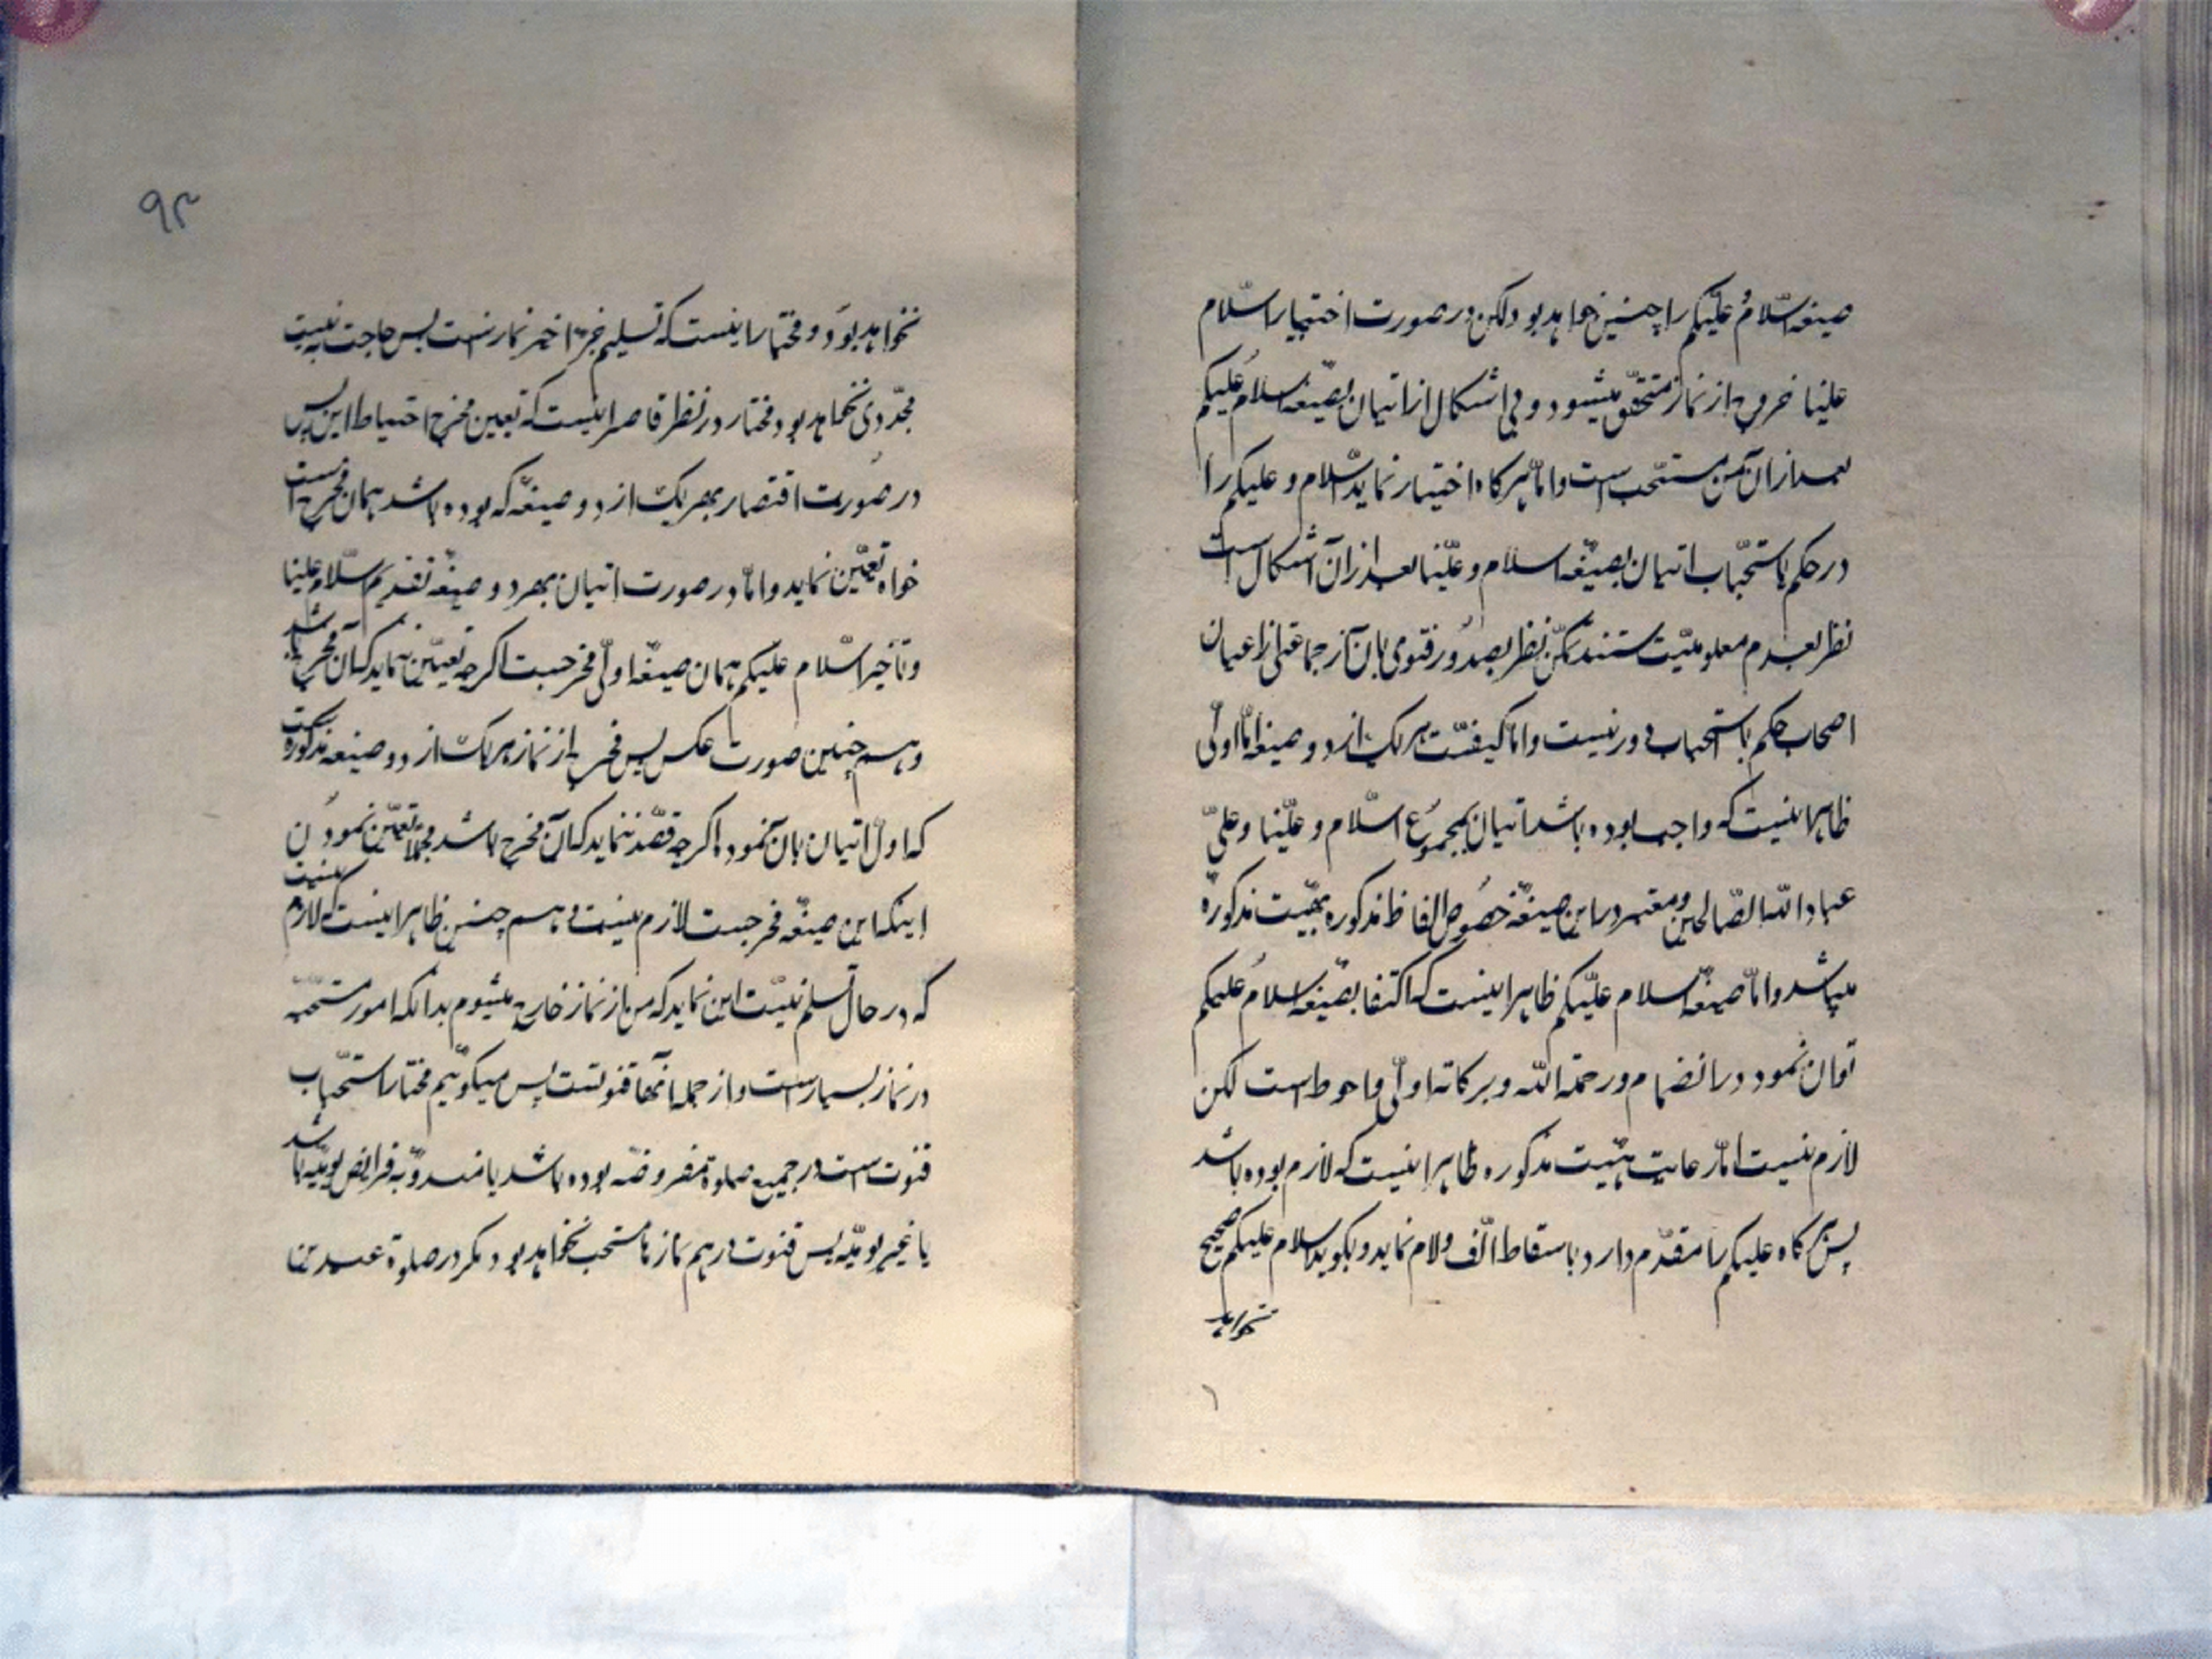 صیغه السّلام علیکم را چنین خواهد بود لکن در صورت اختیار السّلام
علینا خروج از نماز متحقق میشود و بی اشکال از اتیان بصیغه السلام علیکم
بعد از ان آن مستحب است و امّا هرکاه اختیار نماید السّلام و علیکم را
در حکم باستحباب اتیان بصیغه السلام و علینا بعد از ان آن اشکال است
نظر بعدم معلومیّت مستند لکن نظر بصدور فتوی بان از جماعتی از اعیان
اصحاب حکم باستحباب دور نیست و امّا کیفیّت هریک از دو صیغه امّا اولی
ظاهر اینست که واجب بوده باشد اتیان بمجموع السّلام و علینا و علیٰ
عباد اللّه الصّالحین و معتبر در این صیغه خصوص الفاظ مذکوره بهیئت مذکوره
میباشد و امّا صیغه السلام علیکم ظاهر اینست که اکتفا بصیغه السلام علیکم
توان نمود در انضمام و رحمة اللّه و برکاته اولی و احوط است لکن
لازم نیست امّا رعایت هیئت مذکوره ظاهر اینست که لازم بوده باشد
پس هرکاه علیکم را مقدّم دارد باسقاط الف و لام نماید و بکوید سلام علیکم صحیح
نخواهد
۹۲
نخواهد بود و مختار اینست که تسلیم جزء اخیر نماز است پس حاجت به نیت
مجدّدی نخواهد بود و مختار در نظر قاصر اینست که تعیین مخرج احتیاط این پس
در صورت اقتصار بهریک از دو صیغه که بوده باشد همان مخرج است
خواه تعیین نماید و امّا در صورت اتیان بهر دو صیغه تقدیم السّلام علینا
و تأخیر السّلام علیکم همان صیغه اولی مخرجست اکرچه تعیین ننماید که آن مخرج باشد
و هم چنین صورت عکس پس مخرج از نماز هریک از دو صیغه مذکوره است
که اول اتیان بان نمود اکرچه قصد ننماید که آن مخرج باشد مجملا تعیین نمودن
اینکه این صیغه مخرجست لازم نیست و هم چنین ظاهر اینست که لازم نیست
که در حال تسلیم نیّت این نماید که من باز نماز خارج میشوم بدانکه امور مستحبّه
در نماز بسیار است و از جمله آنها قنوتست پس میکوئیم مختار استحباب
قنوت است در جمیع صلوة مفروضه بوده باشد یا مندوبه فرایض یومیّه باشد
یا غیر یومیّه پس قنوت در هم نمازها مستحب خواهد بود مکر در صلوة عیدین